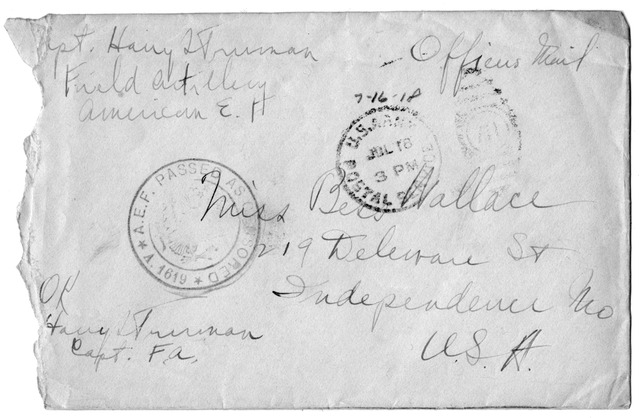 Capt. Harry S Truman
Field Artillery
American E. F.
Officers Mail
7-16-18
U.S. ARMY POSTAL SERVICE
JUL 16
3 PM
A.E.F. PASSED AS CENSORED
A 1619
Miss Bess Wallace
219 Deleware St
Independence Mo
U.S.A.
OK
Harry S Truman
Capt. F.A.